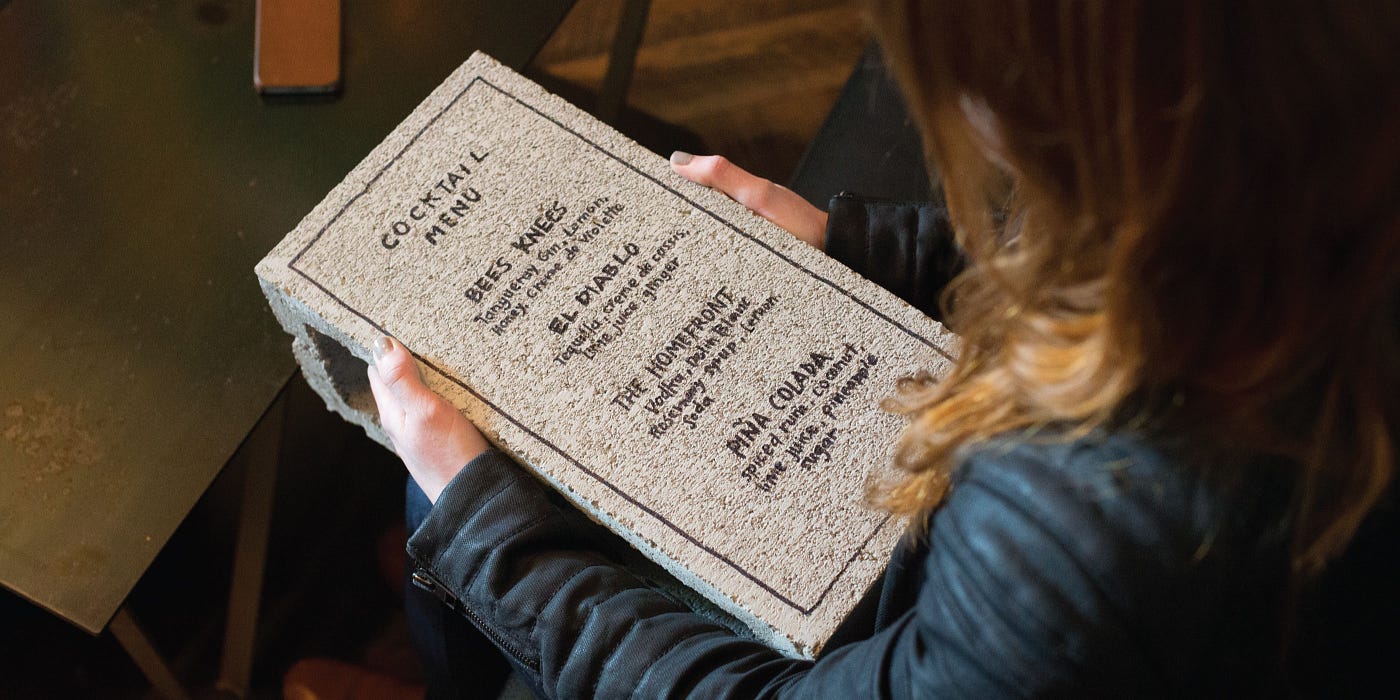 COCKTAIL
MENU
BEES KNEES
Tangueray Gin, Lemon,
Honey, Creme de Violette
EL DIABLO
Tequila, creme de cassis,
Lime juice, ginger
THE HOMEFRONT
Vodka, Blanc
Rosemary syrup, Lemon
Soda
PIÑA COLADA
spiced rum, coconut
lime juice, pineapple
sugar